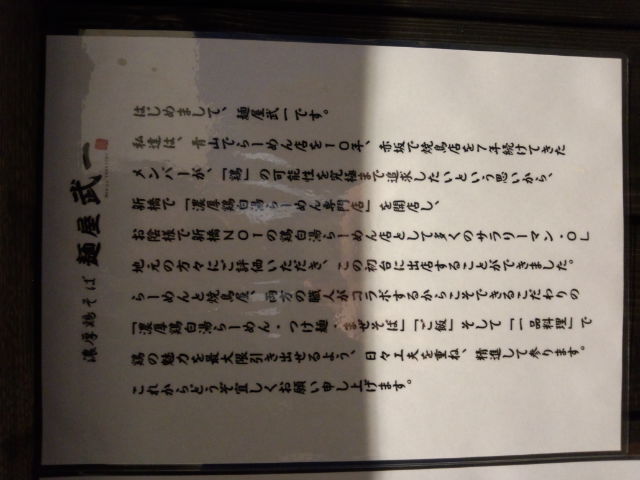 濃厚鶏そば 麺屋武一
はじめまして、麺屋武一です。
私達は、青山でらーめん店を10年、赤坂で焼鳥店を7年続けてきた
メンバーが、「鶏」の可能性を究極まで追求したいという思いから、
新橋で「濃厚鶏白湯らーめん専門店」を開店し、
お陰様で新橋NO1の鶏白湯らーめん店として多くのサラリーマン・OL
地元の方々にご評価いただき、この初台に出店することができました。
らーめんと焼鳥屋 両方の職人がコラボするからこそできるこだわりの
「濃厚鶏白湯らーめん・つけ麺・まぜそば」「ご飯」そして「一品料理」で
鶏の魅力を最大限引き出せるよう、日々工夫を重ね、精進して参ります。
これからどうぞ宜しくお願い申し上げます。